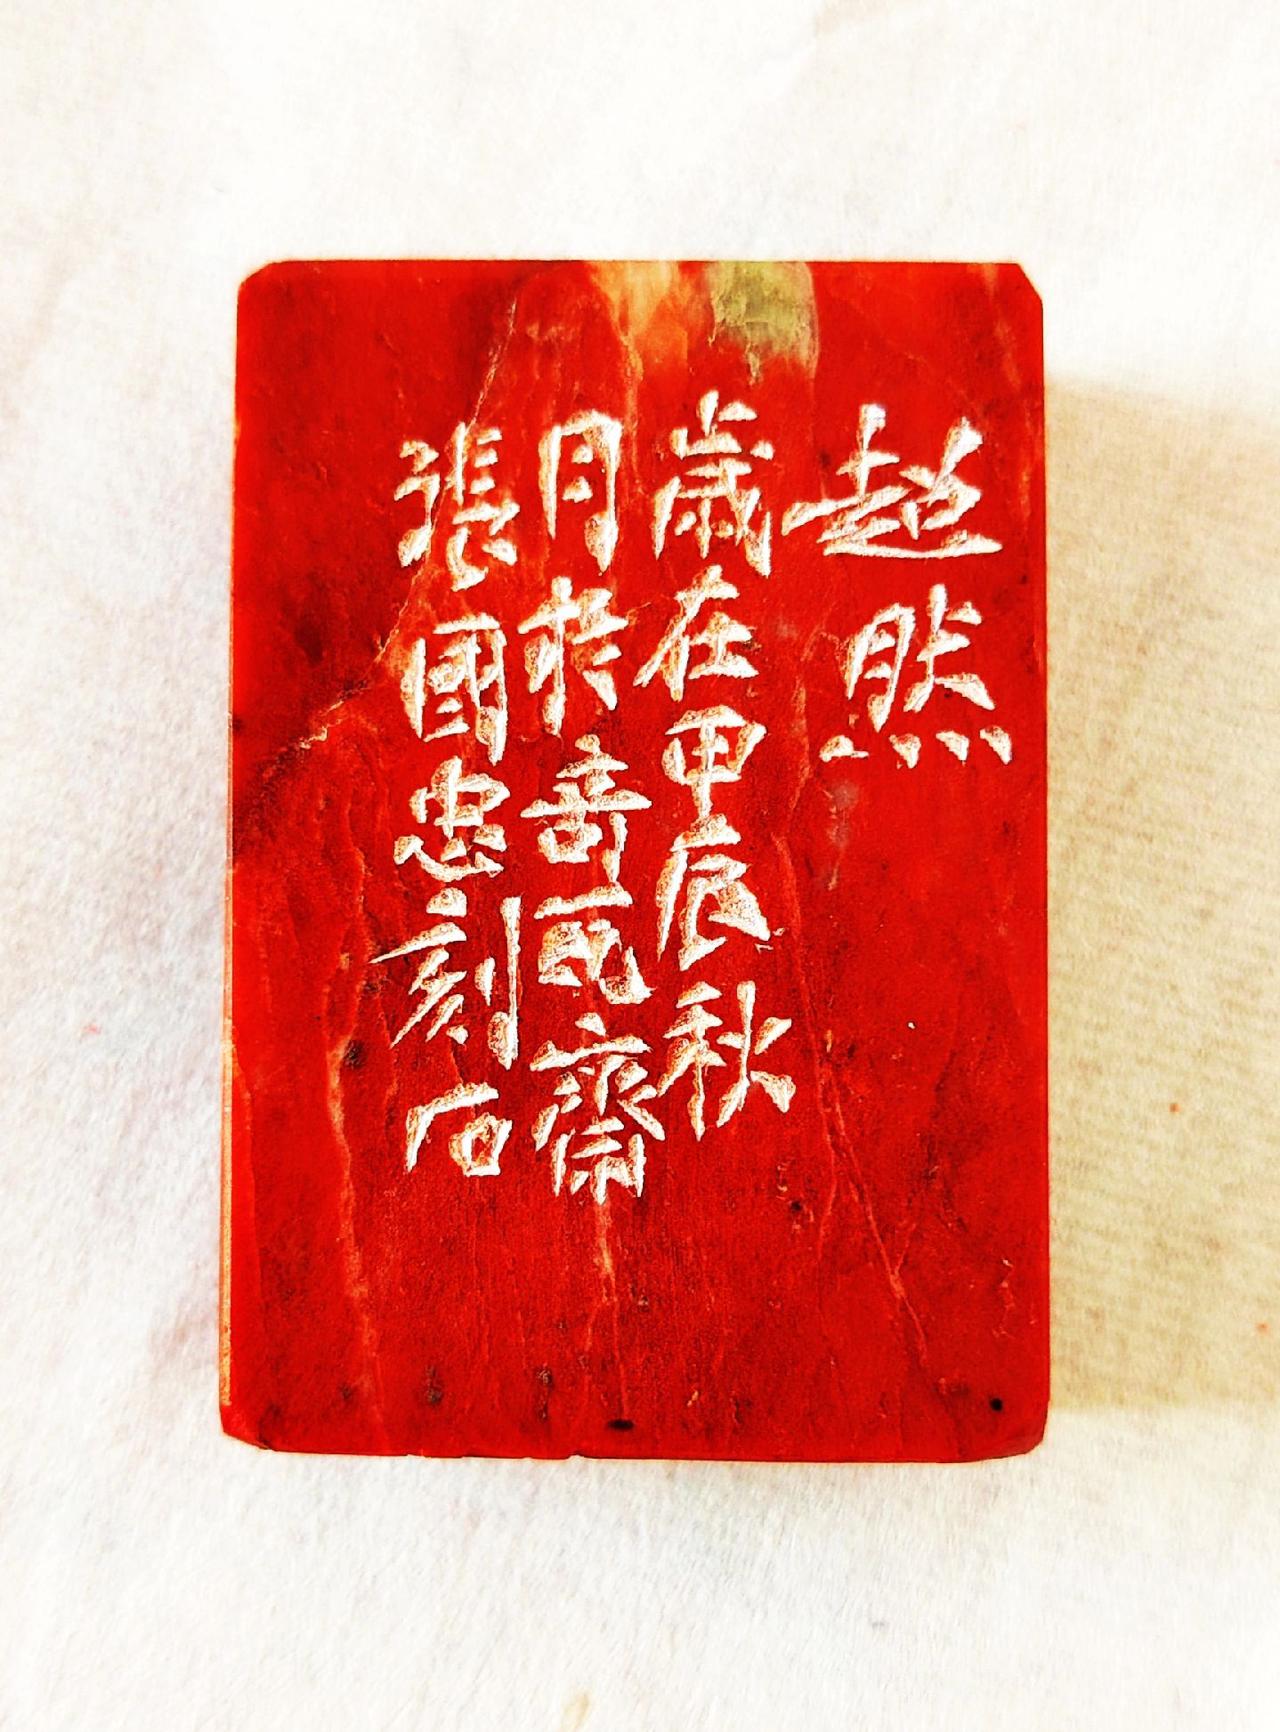 超然
歲在甲辰秋
月於竒瓦齋
張國忠刻石